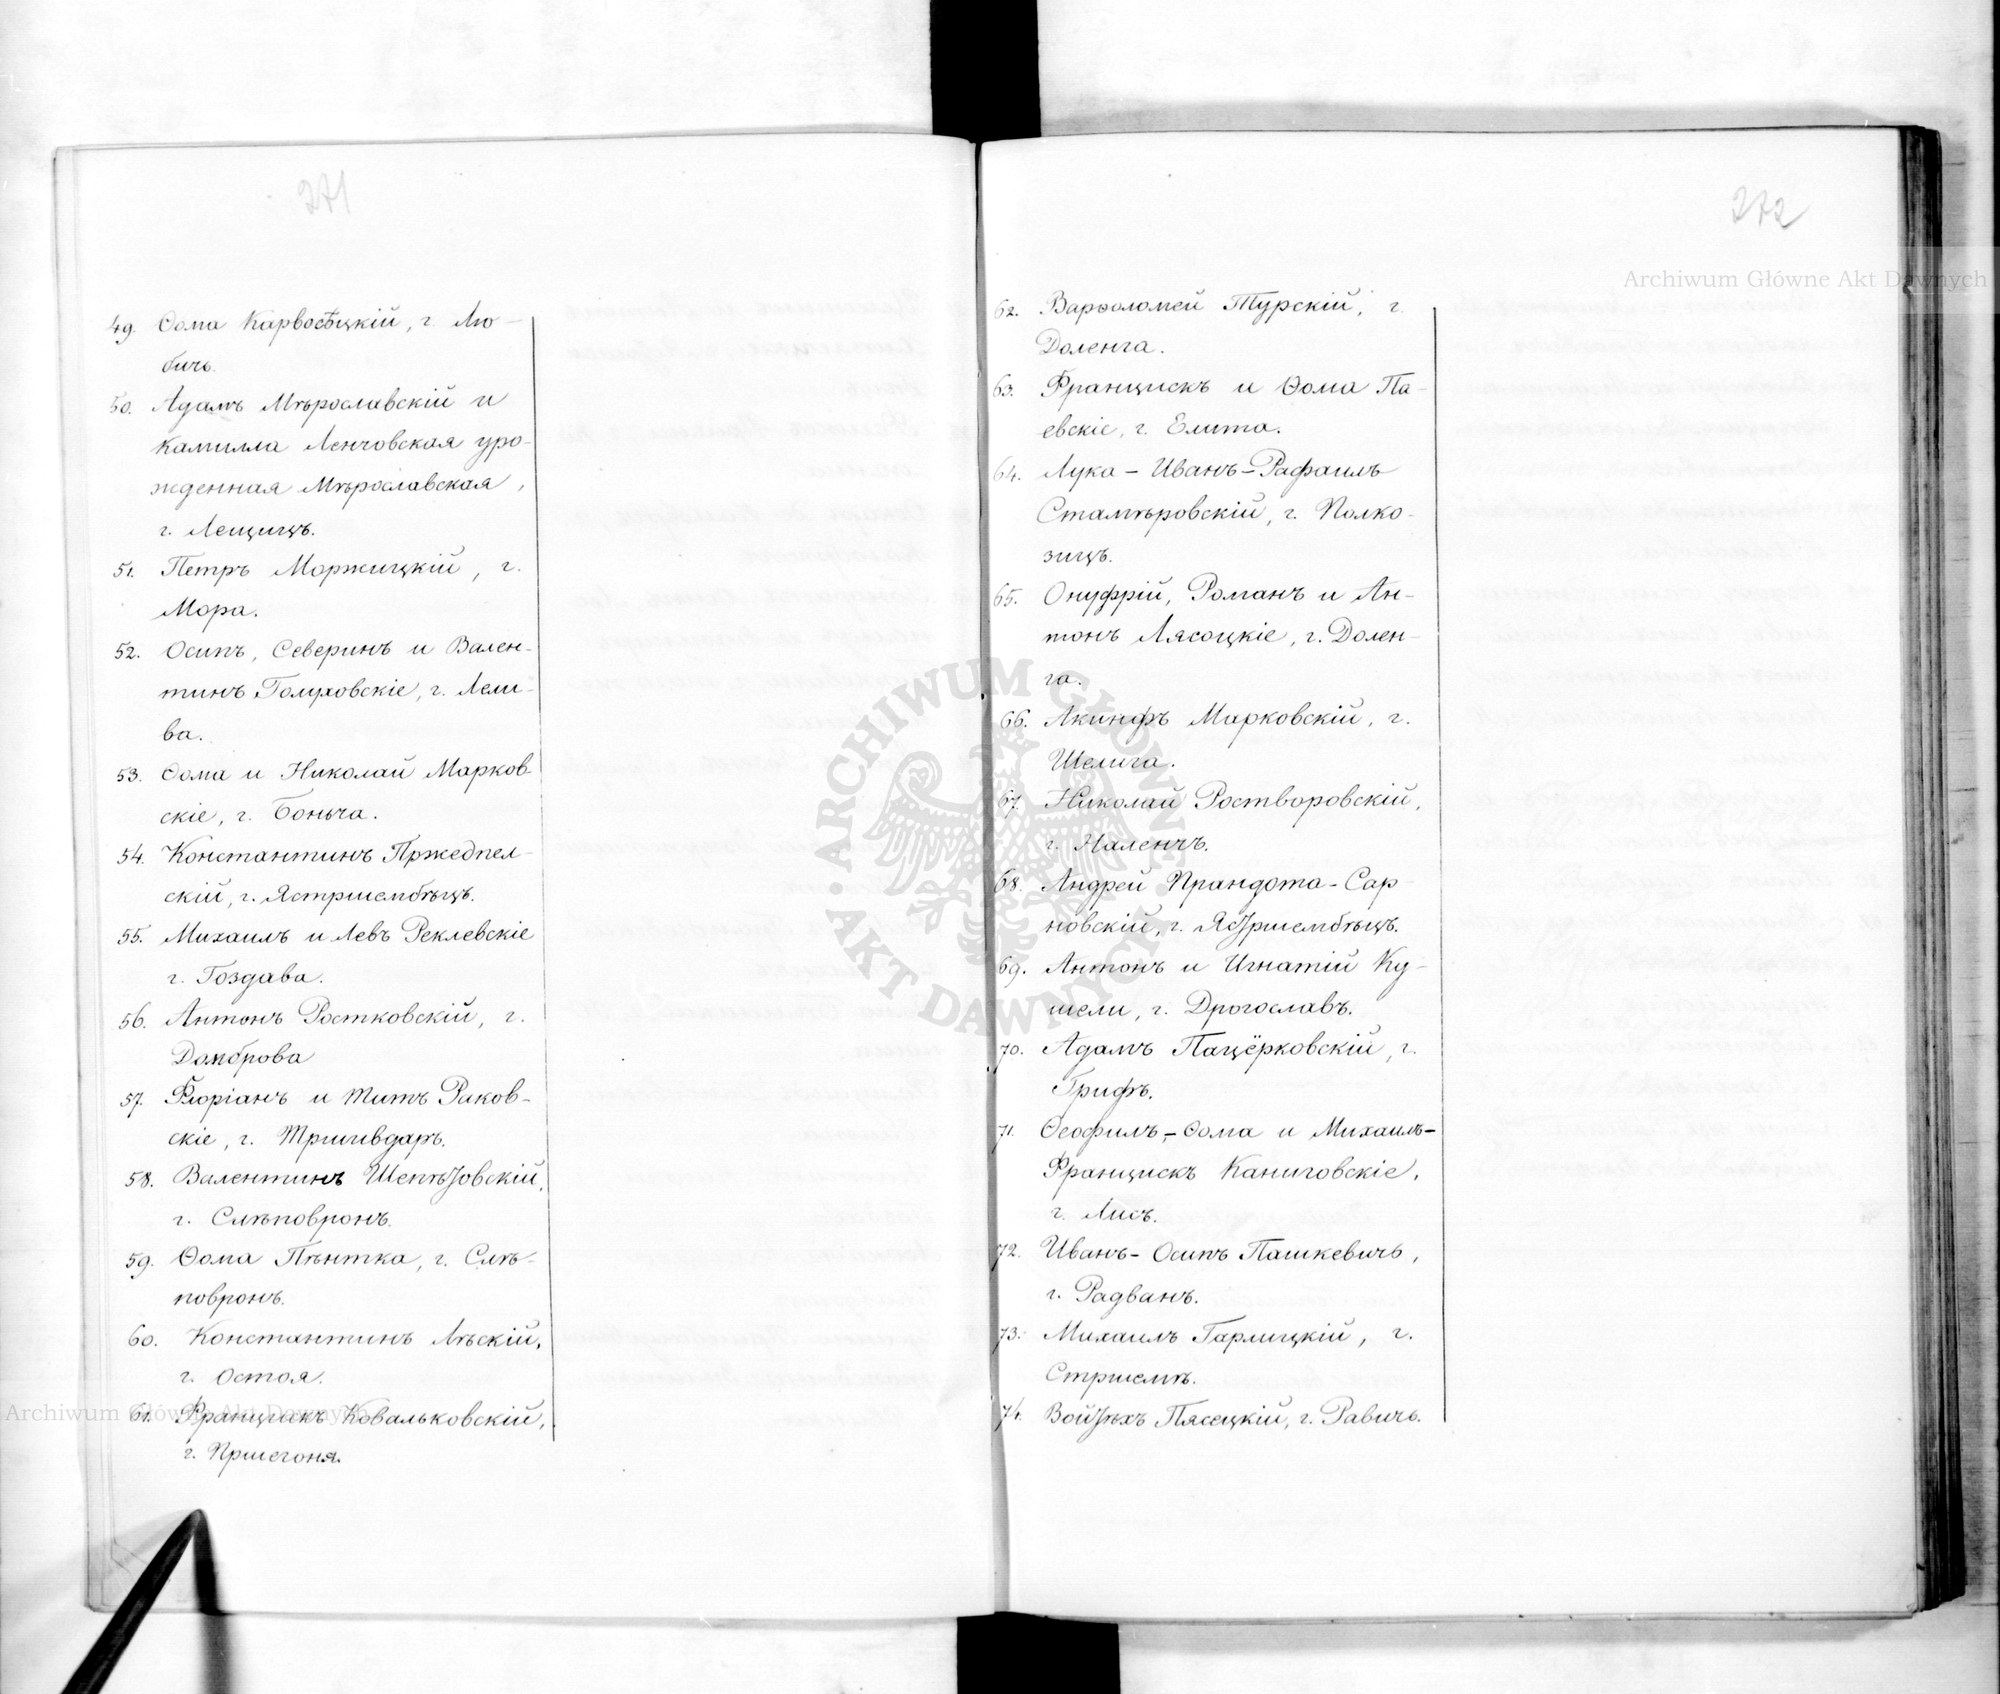 271
49. Ѳома Карвосѣцкій, г. Лю-
бичъ.
50. Адамъ Мѣрославскій и
Камилла Ленчовская уро-
жденная Мѣрославская,
г. Лещицъ.
51. Петръ Моржицкій, г.
Мора.
52. Осипъ, Северинъ и Вален-
тинъ Голуховскіе, г. Лели-
ва.
53. Ѳома и Николай Марков-
скіе, г. Боньча.
54. Константинъ Пржедпел-
скій, г. Ястршембѣцъ.
55. Михаилъ и Левъ Реклевскіе
г. Гоздава.
56. Антонъ Ростковскій, г.
Домброва
57. Флоріанъ и Титъ Раков-
скіе, г. Тршивдаръ.
58. Валентинъ Шепѣтовскій,
г. Слѣповронъ.
59. Ѳома Пѣнтка, г. Слѣ-
повронъ.
60. Константинъ Лѣскій,
г. Остоя.
61. Францискъ Ковальковскій,
г. Пршегоня.
272
62. Варѳоломей Турскій, г.
Доленга.
63. Францискъ и Ѳома Па-
евскіе, г. Елита.
64. Лука-Иванъ-Рафаилъ
Стамѣровскій, г. Полко-
зицъ.
65. Онуфрій, Романъ и Ан-
тонъ Лясоцкіе, г. Долен-
га.
66. Акинфъ Марковскій, г.
Шелига.
67. Николай Ростворовскій,
г. Наленчъ.
68. Андрей Прандота-Сар-
новскій, г. Ястршембѣцъ.
69. Антонъ и Игнатій Ку-
шели, г. Дрогославъ.
70. Адамъ Пацёрковскій, г.
Грифъ.
71. Ѳеофилъ-Ѳома и Михаилъ-
Францискъ Каниговскіе,
г. Лисъ.
72. Иванъ-Осипъ Пашкевичъ,
г. Радванъ.
73. Михаилъ Гарлицкій, г.
Стршемѣ.
74. Войтѣхъ Пясецкій, г. Равичъ.
Archiwum Główne Akt Dawnych
ARCHIWUM GŁÓWNE AKT DAWNYCH
Archiwum Główne Akt Dawnych